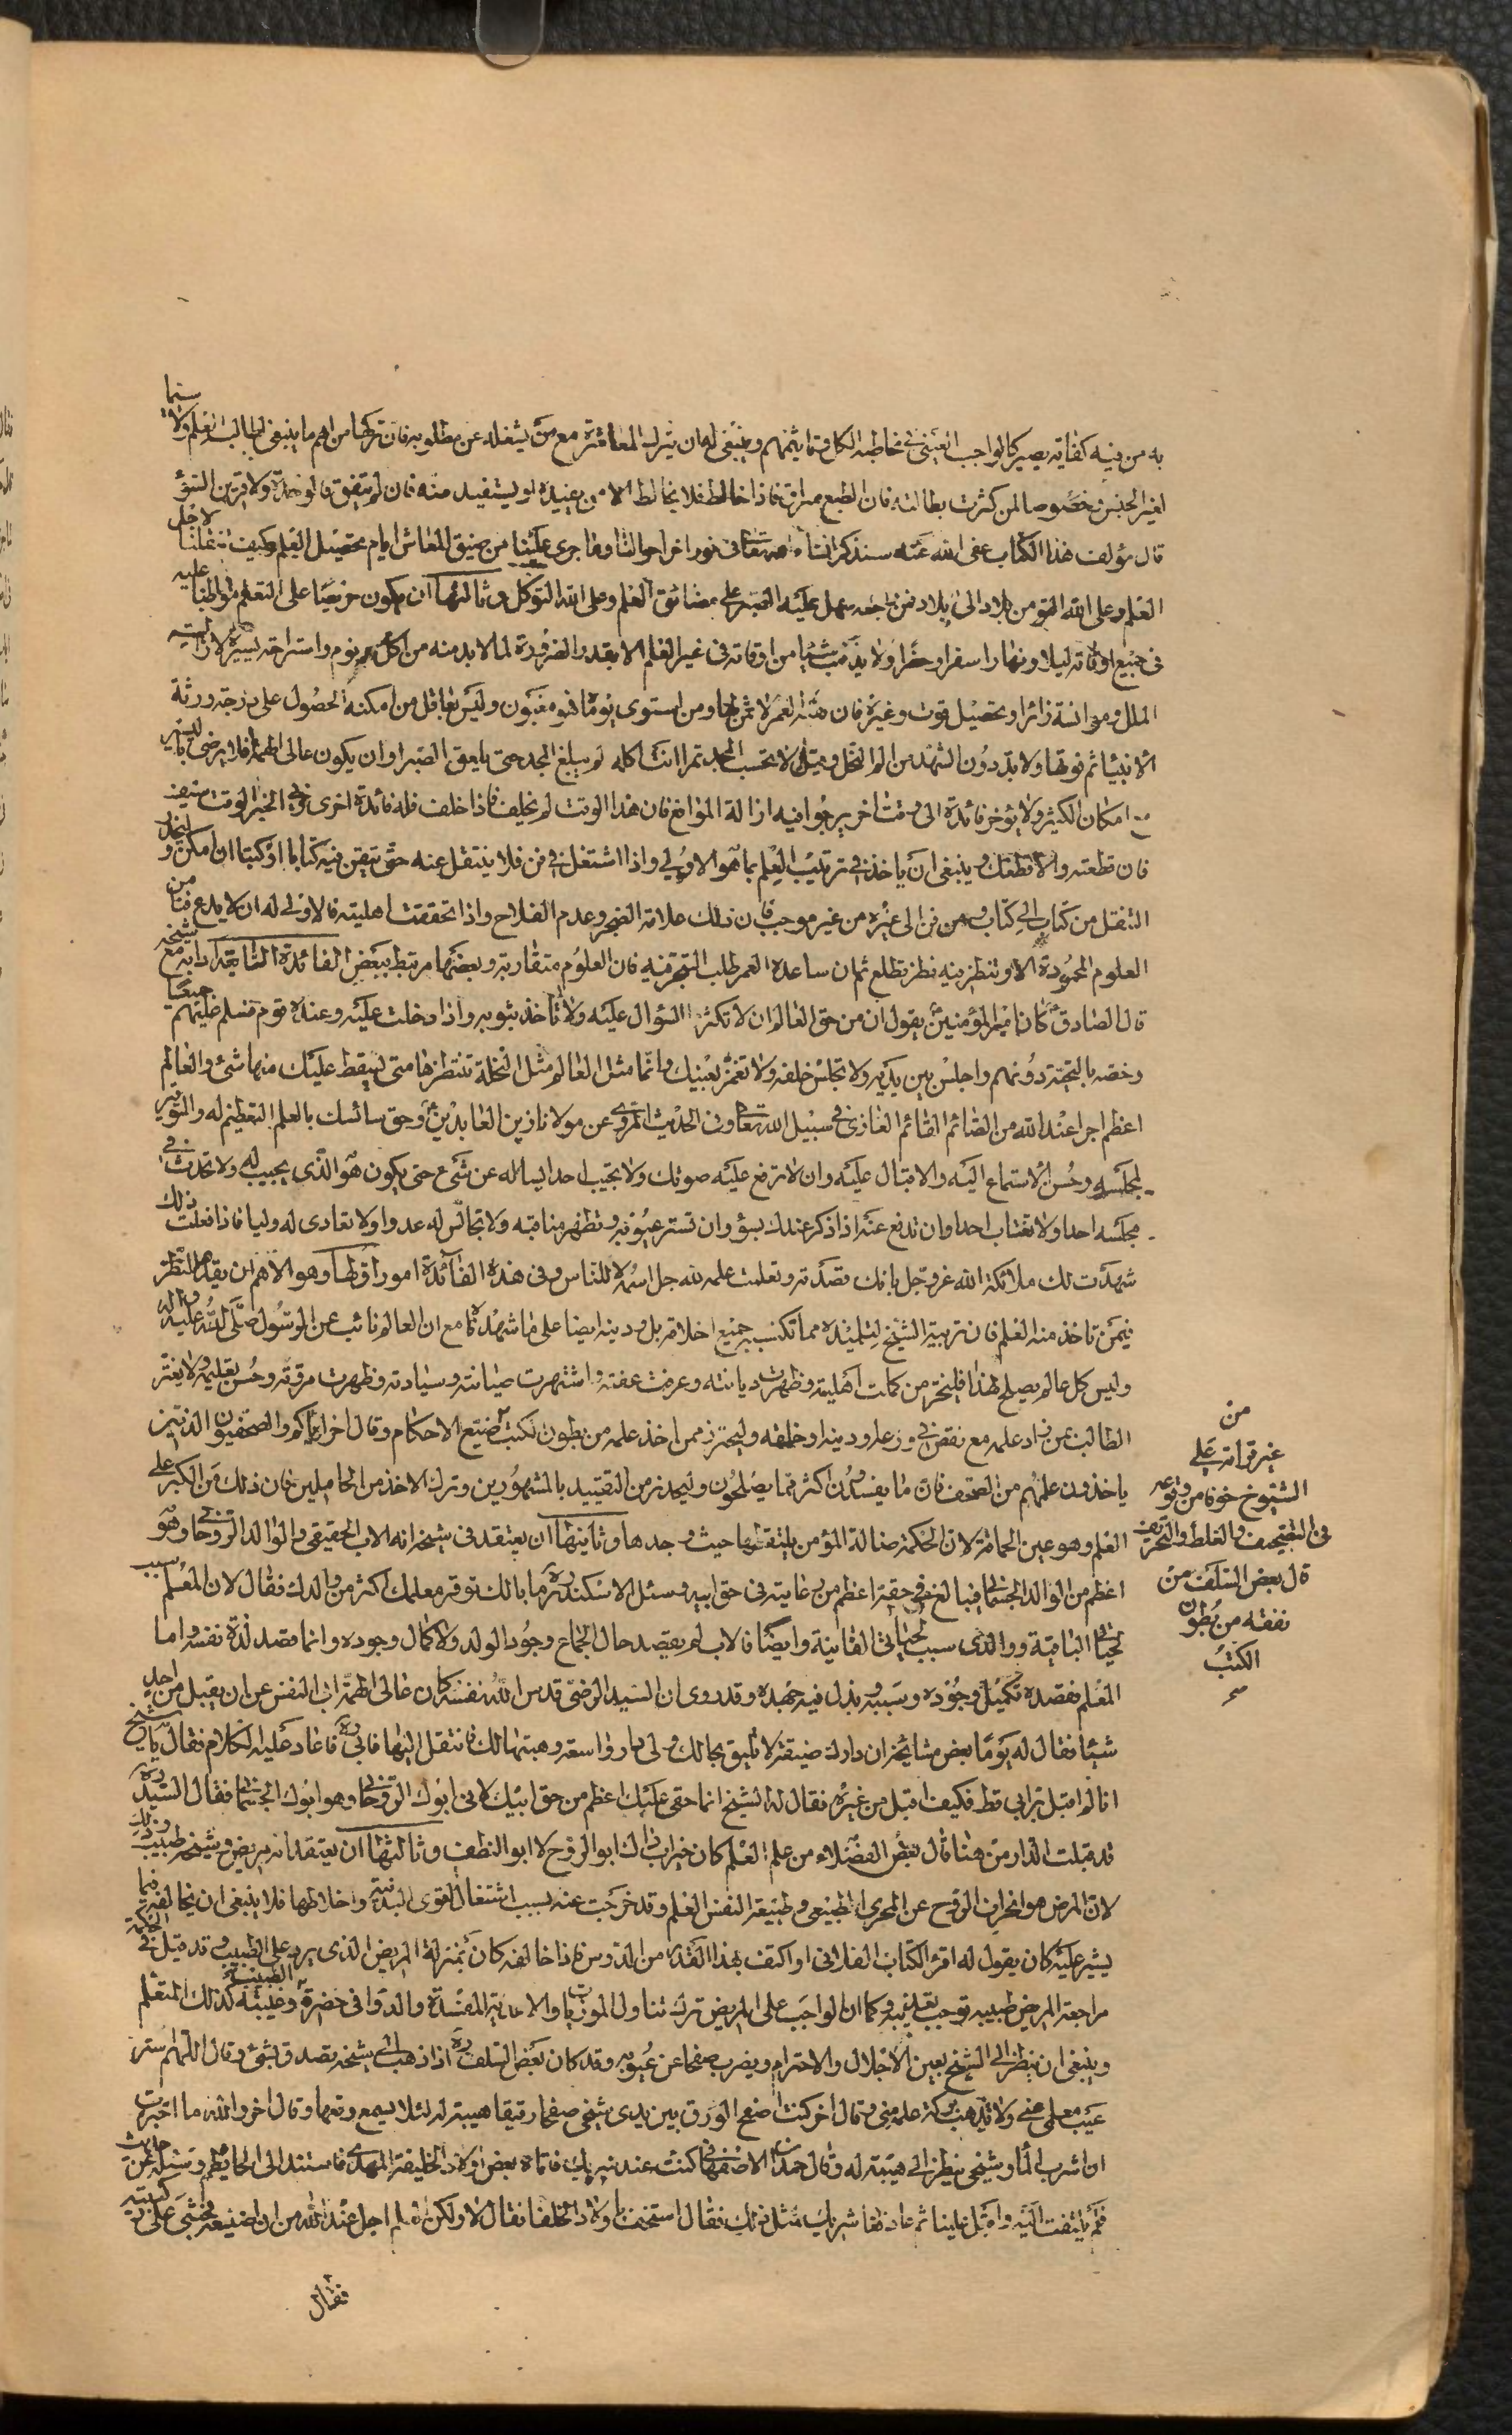 به من فيه كفاية يصير كالواجب العيني في مخاطبة الكل وتأثيمهم وينبغي له ان يترك المعاشرة مع من يشغله عن مطلوبه فان تركها من اهم ما ينبغي لطالب العلم ولا سيما
لغير الجنس خصوصا لمن كثرت بطالته فان الطبع سراق فاذا خالط فلا يخالط الا من يفيده او يستفيد منه فان لم يتفق فالوحدة ولا قرين السوء
قال مؤلف هذا الكتاب عفى الله عنه سنذكر انشاء الله تعالى في نور اخر احوالنا وما جرى علينا من ضيق المعاش ايام تحصيل العلم وكيف تنقلنا لاجل
العلم وعلى الله من بلاد الى بلاد فمن راجعه سهل عليه الصبر على مضائق العلم وعلى الله التوكل وثالثها ان يكون حريصا على التعلم مواظبا عليه
في جميع اوقاته ليلا ونهارا سفرا وحضرا ولا يذهب شيئا من اوقاته في غير العلم الا بقدر الضرورة لما لا بد منه من اكل ونوم واستراحة يسيرة لازالة
الملل ومؤانسة زائر وتحصيل قوت وغيره فان بقية العمر لا ثمن لها ومن استوى يوماه فهو مغبون وليس بعاقل من امكنه الحصول على درجة ورثة
الانبياء ثم فوتها ولا بد دون الشهد من الم النحل وقيل لا تحسب المجد تمرا انت اكله لن تبلغ المجد حتى تلعق الصبرا وان يكون عالي الهمة فلا يرضى باليسير
مع امكان الكثير ولا يؤخر فائدة الى وقت اخر يرجو فيه ازالة الموانع فان هذا الوقت لم يخلف فاذا خلف فله فائدة اخرى وفي الخبر الوقت سيف
فان قطعته والا قطعك وينبغي ان ياخذ في ترتيب العلم بما هو الاولى واذا اشتغل في فن فلا ينتقل عنه حتى يتقن فيه كتابا او كتبا ان امكن وليحذر
التنقل من كتاب الى كتاب ومن فن الى غيره من غير موجب فان ذلك علامة الضجر وعدم الفلاح واذا تحققت اهليته فالاولى له ان لا يدع فنا من
العلوم المحمودة الا وينظر فيه نظر تطلع ثم ان ساعده العمر طلب التبحر فيه فان العلوم متقاربة وبعضها مرتبط ببعض الفائدة الثانية ادابه مع شيخه
قال الصادق ع كان امير المؤمنين ع يقول ان من حق العالم ان لا تكثر السؤال عليه ولا تأخذ بثوبه واذا دخلت عليه وعنده قوم فسلم عليهم جميعا
وخصه بالتحية دونهم واجلس بين يديه ولا تجلس خلفه ولا تغمز بعينك وانما مثل العالم مثل النخلة تنتظرها متى يسقط عليك منها شئ والعالم
اعظم اجرا عند الله من الصائم القائم الغازي في سبيل الله تعالى وفي الحديث المروي عن مولانا زين العابدين ع وحق سائسك بالعلم التعظيم له والتوقير
لمجلسه وحسن الاستماع اليه والاقبال عليه وان لا ترفع عليه صوتك ولا تجيب احدا يسأله عن شئ حتى يكون هو الذي يجيب له ولا تحدث في
مجلسه احدا ولا تغتاب احدا وان تدفع عنه اذا ذكر عندك بسوء وان تستر عيوبه وتظهر مناقبه ولا تجالس له عدوا ولا تعادى له وليا فاذا فعلت ذلك
شهدت لك ملائكة الله عز وجل بانك قصدته وتعلمت علمه لله جل اسمه لا للناس وفي هذه الفائدة امور اولها وهو الاهم ان يقدم النظر
فيمن تأخذ منه العلم فان تربية الشيخ لتلميذه مما تكتسب جميع اخلاقه بل ودينه ايضا على ما شهدنا مع ان العالم نائب عن الرسول صلى الله عليه واله
وليس كل عالم يصلح لهذا فليختر من كملت اهليته وظهرت ديانته وعرفت عفته واشتهرت صيانته وسيادته وظهرت مروته وحسن تعليمه ولا يغتر
الطالب بمن زاد علمه مع نقص في ورعه او دينه او خلقه وليحترز ممن اخذ علمه من بطون الكتب
ضيع الاحكام وقال اخر اياكم والصحفيون الذين
ياخذون علمهم من الصحف فان ما يفسدون اكثر مما يصلحون وليحذر من التقييد بالمشهورين وترك الاخذ من الخاملين فان ذلك من الكبر على
العلم وهو عين الحماقة لان الحكمة ضالة المؤمن يلتقطها حيث وجدها وثانيها ان يعتقد في شيخه انه الاب الحقيقي والوالد الروحاني وهو
اعظم من الوالد الجسماني فيبالغ في حقه اعظم من رعايته في حق ابيه وسئل الاسكندر ما بالك توقر معلمك اكثر من والدك فقال لان المعلم سبب
لحياتي الباقية ووالدي سبب لحياتي الفانية وايضا فالاب لم يقصد حال الجماع وجود الولد ولا كمال وجوده وانما قصد لذة نفسه واما
المعلم فقصده تكميل وجوده وسببه وبذل فيه جهده وقد روى ان السيد الرضي قدس الله نفسه كان عالي الهمة ابي النفس عن ان يقبل من احد
شيئا فقال له يوما بعض مشايخه ان دارك ضيقة لا تليق بحالك ولي دار واسعة وهبتها لك فانتقل اليها فابى فاعاد عليه الكلام فقال يا شيخ
انا لم اقبل بر ابي قط فكيف اقبل من غيره فقال له الشيخ انما حقي عليك اعظم من حق ابيك لاني ابوك الروحاني وهو ابوك الجسماني فقال السيد ره
قد قبلت الدار من هنا قال بعض الفضلاء من علم العلم كان خير اب ذاك ابو الروح لا ابو النطف وثالثها ان يعتقد انه مريض وشيخه طبيب وذلك
لان المرض هو انحراف الروح عن المجرى الطبيعي وطبيعة النفس العلم وقد خرجت عنه بسبب اشتغال القوى البدنية واخلاطها فلا ينبغي ان يخالفه فيما
يشير عليه كان يقول له اقرء الكتاب الفلاني او اكتف بهذا القدر من الدروس فاذا خالفه كان بمنزلة المريض الذي يرد على الطبيب وقد قيل في الحكمة
مراجعة المريض طبيبه توجب تعذيبه وكما ان الواجب على المريض ترك تناول الموذيات والاغذية المفسدة والدواء في حضرة الطبيب وغيبته كذلك المتعلم
وينبغي ان ينظر الى الشيخ بعين الاجلال والاحترام ويضرب صفحا عن عيوبه وقد كان بعض السلف ره اذا ذهب الى شيخه تصدق بشئ وقال اللهم استر
عيب معلمي عني ولا تذهب بركة علمه مني وقال اخر كنت اصفح الورق بين يدي شيخي صفحا رقيقا هيبة له لئلا يسمع وقعها وقال اخر والله ما اجترءت
ان اشرب الماء وشيخي ينظر الي هيبة له وقال حمدان الاصفهاني كنت عند شريك فاتاه بعض اولاد الخليفة المهدي فاستند الى الحائط وسئله عن حديث
فلم يلتفت اليه واقبل علينا ثم عاد فعاد شريك مثل ذلك فقال استخف باولاد الخلفاء فقال لا ولكن العلم اجل عند الله من ان اضيعه فجثى على ركبتيه
فقال
من
غير قرائة على
الشيوخ خوفا من وقوعه
في التصحيف والغلط والتحريف
قال بعض السلف من
تفقه من بطون
الكتب
صح